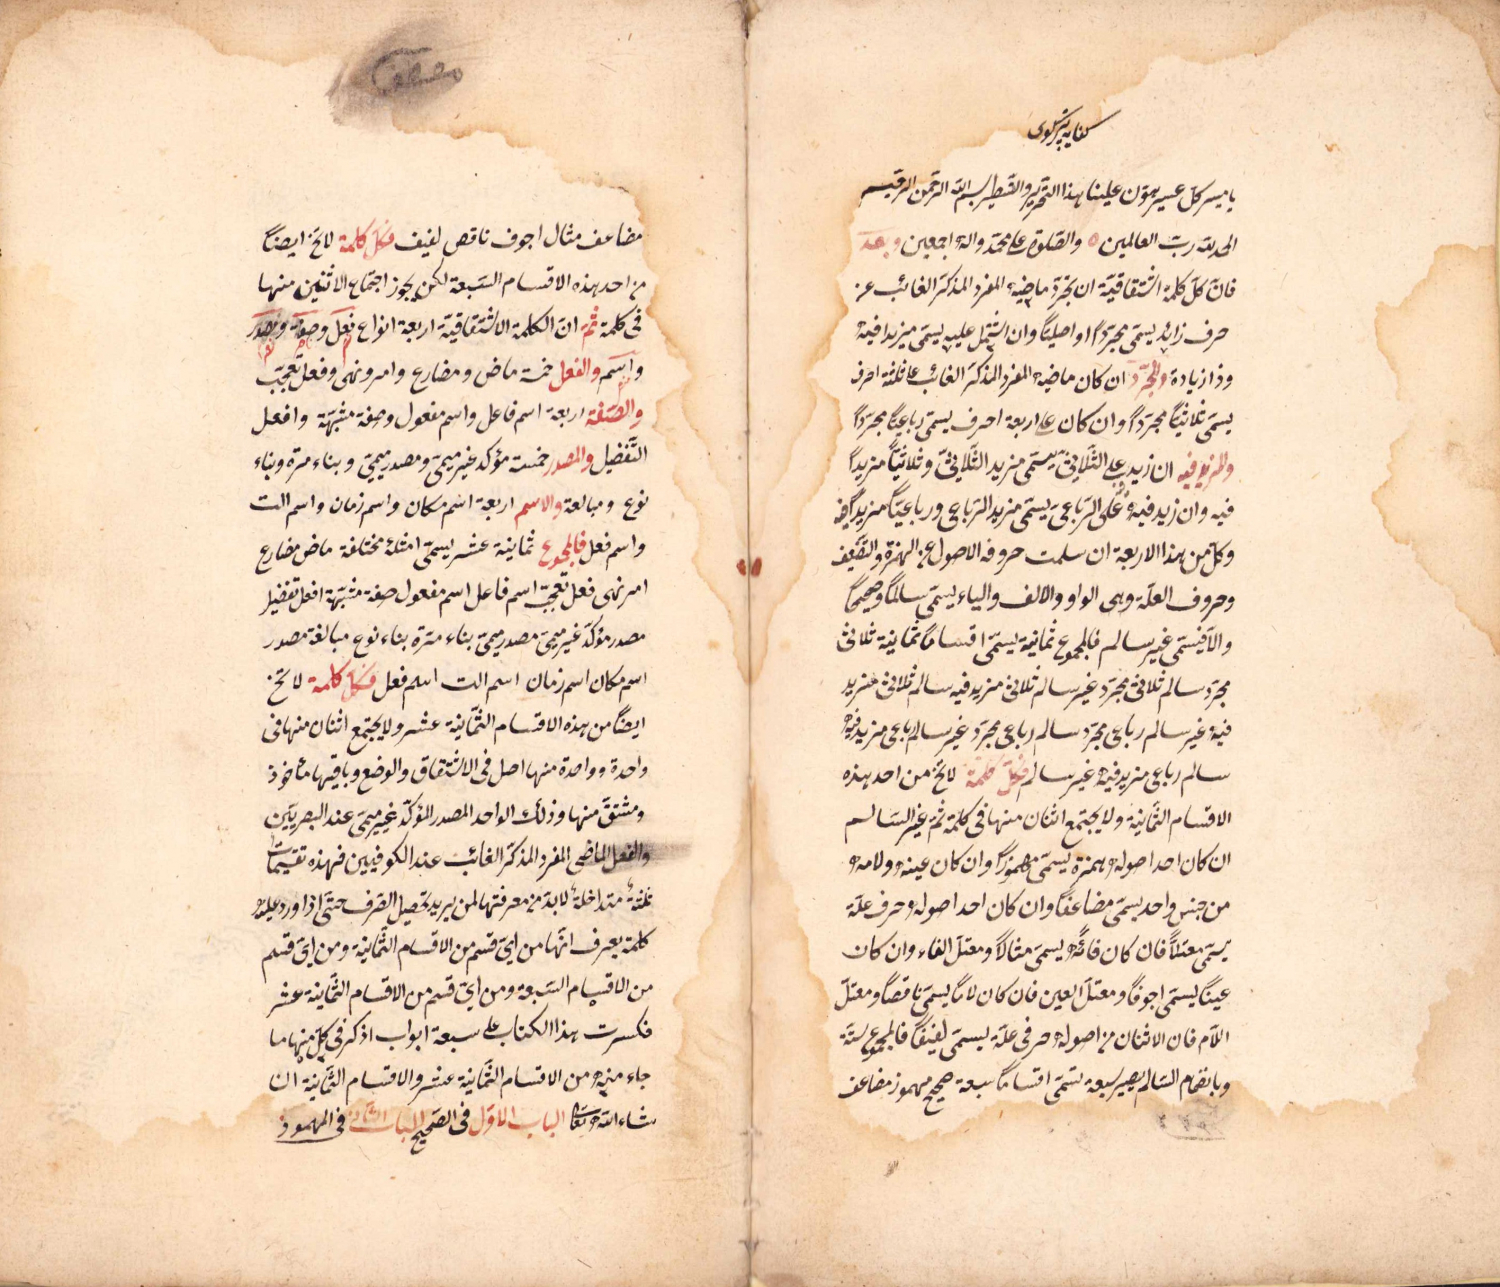 كفايه پركوى
يا ميسر كل عسير هون علينا هذا التحرير والتسطير بسم الله الرحمن الرحيم
الحمد لله رب العالمين والصلوة على محمد وآله اجمعين وبعد
فان كل كلمة اشتقاقية ان تجرد ماضيه المفرد المذكر الغائب عن
حرف زائد يسمى مجردا او اصليا وان اشتمل عليه يسمى مزيدا فيه
وذا زيادة والمجرد ان كان ماضيه المفرد المذكر الغائب على ثلثة احرف
يسمى ثلاثيا مجردا وان كان على اربعة احرف يسمى رباعيا مجردا
والمزيد فيه ان زيد على الثلاثى يسمى مزيد الثلاثى وثلاثيا مزيدا
فيه وان زيد فيه على الرباعى يسمى مزيد الرباعى ورباعيا مزيدا فيه
وكل من هذا الاربعة ان سلمت حروفه الاصول عن الهمزة والتضعيف
وحروف العلة وهى الواو والالف والياء يسمى سالما وصحيحا
والا فيسمى غير سالم فالمجموع ثمانية يسمى اقساما ثمانية ثلاثى
مجرد سالم ثلاثى مجرد غير سالم ثلاثى مزيد فيه سالم ثلاثى مزيد
فيه غير سالم رباعى مجرد سالم رباعى مجرد غير سالم رباعى مزيد فيه
سالم رباعى مزيد فيه غير سالم فكل كلمة لا تخ من احد هذه
الاقسام الثمانية ولا يجتمع اثنان منها فى كلمة ثم غير السالم
ان كان احد اصوله همزة يسمى مهموزا وان كان عينه ولامه
من جنس واحد يسمى مضاعفا وان كان احد اصوله حرف علة
يسمى معتلا فان كان فائه يسمى مثالا ومعتل الفاء وان كان
عينا يسمى اجوفا ومعتل العين فان كان لاما يسمى ناقصا ومعتل
اللام فان الاثنان من اصوله حرفى علة يسمى لفيفا فالمجموع ستة
وبانضمام السالم يصير سبعة تسمى اقساما سبعة صحيح مهموز مضاعف
مضاعف مثال اجوف ناقص لفيف فكل كلمة لا تخ ايضا
من احد هذه الاقسام السبعة لكن يجوز اجتماع الاثنين منها
فى كلمة ثم ان الكلمة الاشتقاقية اربعة انواع فعل وصفة ومصدر
واسم والفعل خمسة ماض ومضارع وامر ونهى وفعل تعجب
والصفة اربعة اسم فاعل واسم مفعول وصفة مشبهة وافعل
التفضيل والمصدر خمسة مؤكد غير ميمى ومصدر ميمى وبناء مرة وبناء
نوع ومبالغة والاسم اربعة اسم مكان واسم زمان واسم الت
واسم فعل فالمجموع ثمانية عشر يسمى امثلة مختلفة ماض مضارع
امر نهى فعل تعجب اسم فاعل اسم مفعول صفة مشبهة افعل تفضيل
مصدر مؤكد غير ميمى مصدر ميمى بناء مرة بناء نوع مبالغة مصدر
اسم مكان اسم زمان اسم الت اسم فعل فكل كلمة لا تخ
ايضا من هذه الاقسام الثمانية عشر ولا يجتمع اثنان منها فى
واحدة وواحدة منها اصل فى الاشتقاق والوضع وباقيها مأخوذ
ومشتق منها وذلك الواحد المصدر المؤكد غير ميمى عند البصريين
والفعل الماضى المفرد المذكر الغائب عند الكوفيين فهذه تقسيمات
ثلثة متداخلة لا بد من معرفتها لمن يريد تحصيل الصرف حتى اذا ورد عليه
كلمة يعرف انها من اى قسم من الاقسام الثمانية ومن اى قسم
من الاقسام السبعة ومن اى قسم من الاقسام الثمانية عشر
فكسرت هذا الكتاب على سبعة ابواب اذكر فى كل منها ما
جاء منه من الاقسام الثمانية عشر والاقسام الثمانية ان
شاء الله تعالى الباب الاول فى الصحيح الباب الثانى فى المهموز